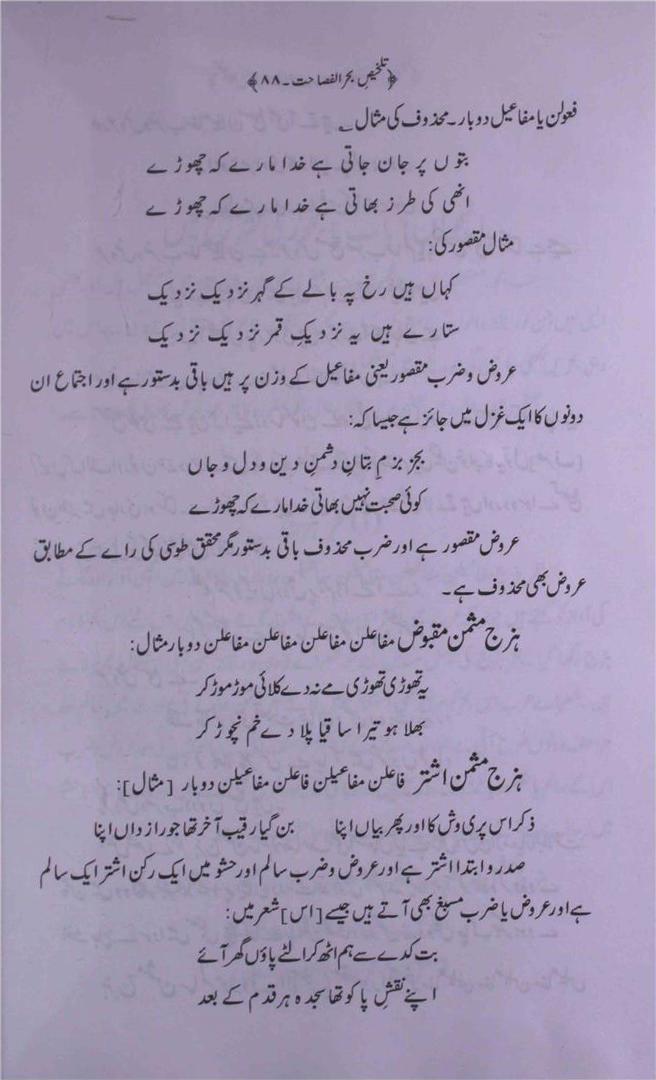 ﴿تلخیصِ بحر الفصاحت۔۸۸﴾
فعولن یا مفاعیل دوبار۔ محذوف کی مثال ؎
بتوں پر جان جاتی ہے خدا مارے کہ چھوڑے
انھی کی طرز بھاتی ہے خدا مارے کہ چھوڑے
مثال مقصور کی:
کہاں ہیں رخ پہ بالے کے گہر نزدیک نزدیک
ستارے ہیں یہ نزدیکِ قمر نزدیک نزدیک
عروض و ضرب مقصور یعنی مفاعیل کے وزن پر ہیں باقی بدستور ہے اور اجتماع ان
دونوں کا ایک غزل میں جائز ہے جیسا کہ:
بجز بزمِ بتانِ دشمنِ دین و دل و جاں
کوئی صحبت نہیں بھاتی خدا مارے کہ چھوڑے
عروض مقصور ہے اور ضرب محذوف باقی بدستور مگر محقق طوسی کی راے کے مطابق
عروض بھی محذوف ہے۔
ہزج مثمن مقبوض مفاعلن مفاعلن مفاعلن مفاعلن دوبار مثال:
یہ تھوڑی تھوڑی مے نہ دے کلائی موڑ موڑ کر
بھلا ہو تیرا ساقیا پلا دے خم نچوڑ کر
ہزج مثمن اشتر فاعلن مفاعیلن فاعلن مفاعیلن دوبار [مثال]:
ذکر اس پری وش کا اور پھر بیاں اپنا بن گیا رقیب آخر تھا جو راز داں اپنا
صدر و ابتدا اشتر ہے اور عروض و ضرب سالم اور حشو میں ایک رکن اشتر ایک سالم
ہے اور عروض یا ضرب مسبغ بھی آتے ہیں جیسے [اس] شعر میں:
بت کدے سے ہم اٹھ کر الٹے پاؤں گھر آئے
اپنے نقشِ پا کو تھا سجدہ ہر قدم کے بعد